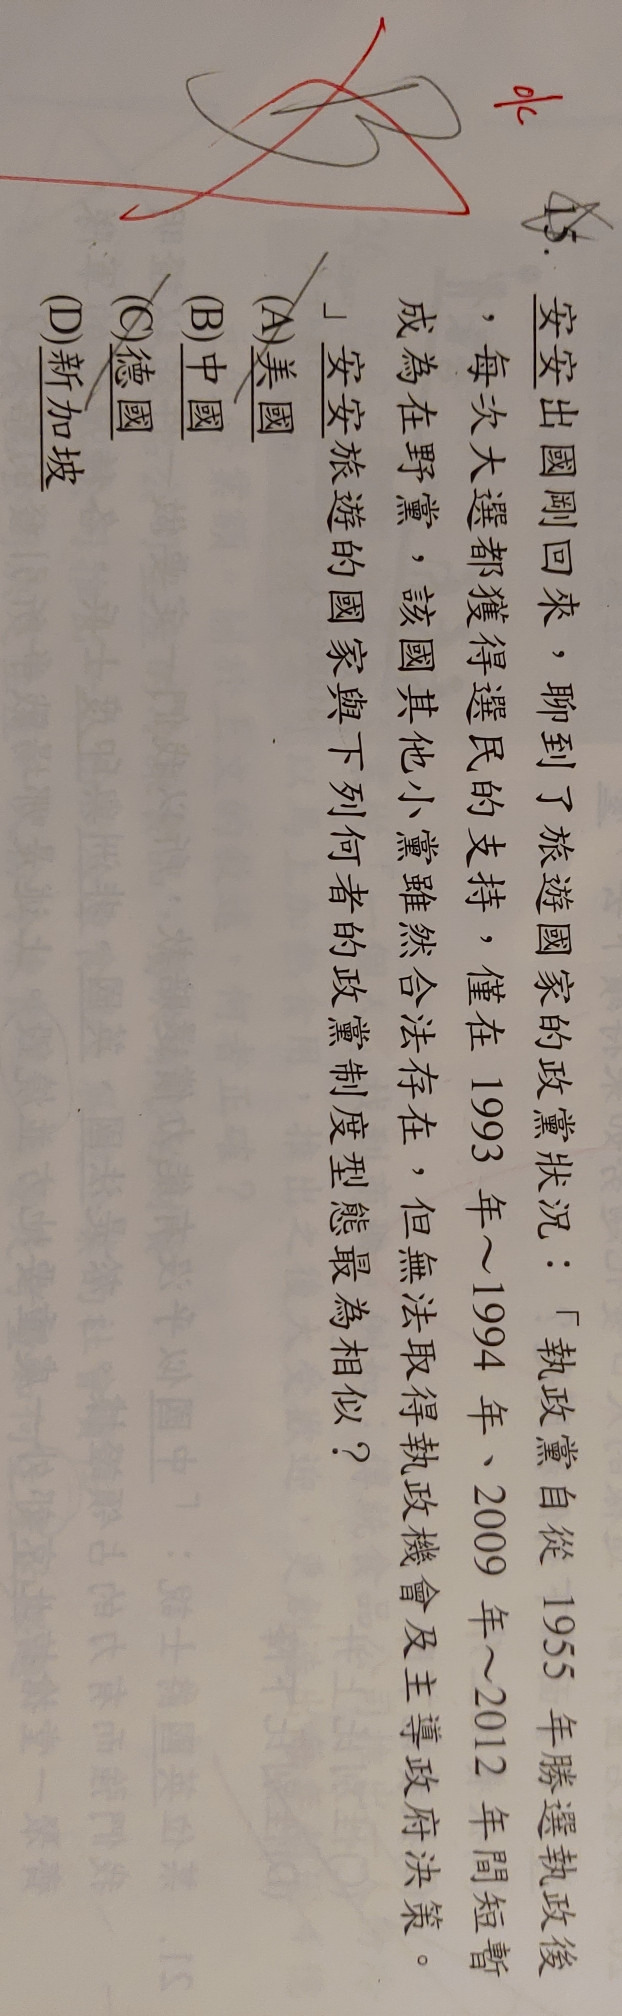 ok
B
15. 安安出國剛回來，聊到了旅遊國家的政黨狀況：「執政黨自從 1955 年勝選執政後
，每次大選都獲得選民的支持，僅在 1993 年～1994 年、2009 年～2012 年間短暫
成為在野黨，該國其他小黨雖然合法存在，但無法取得執政機會及主導政府決策。
」安安旅遊的國家與下列何者的政黨制度型態最為相似？
(A)美國
(B)中國
(C)德國
(D)新加坡